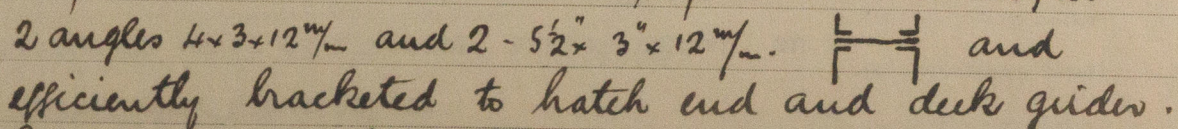 2 angles 4 x 3 x 12 m/m and 2 - 5½" x 3" x 12 m/m. and
efficiently bracketed to hatch end and deck girder.